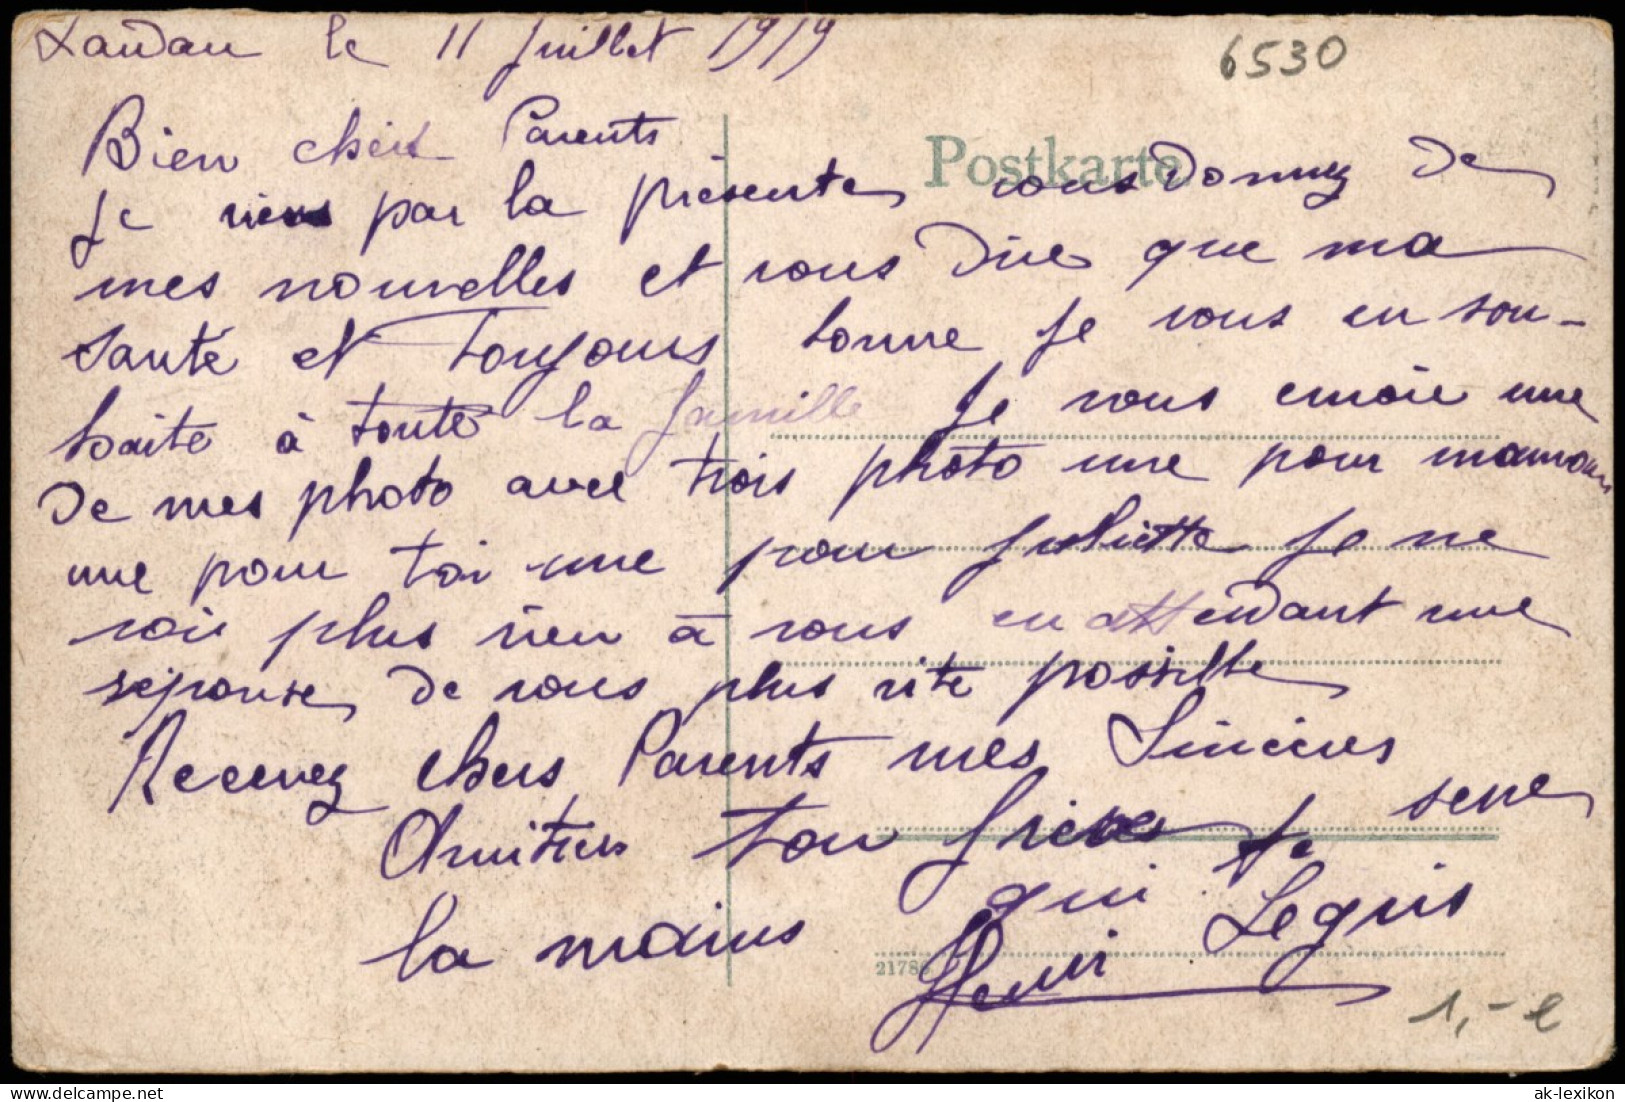 Landau le 11 Juillet 1919
6530
Postkarte
Bien cheis Parents
Je viens par la présente vous donnez de
mes nouvelles et vous dire que ma
santé et toujours bonne je vous en sou-
haite à toute la famille Je vous envoie une
de mes photo avec trois photo une pour maman
une pour toi une pour Juliette Je ne
vois plus rien à vous en attendant une
réponse de vous plus vite possible
Recevez chers Parents mes Sincères
Amitiés ton frère qui te serre
la mains Henri Leguis
2178
1,- e
ak-lexikon